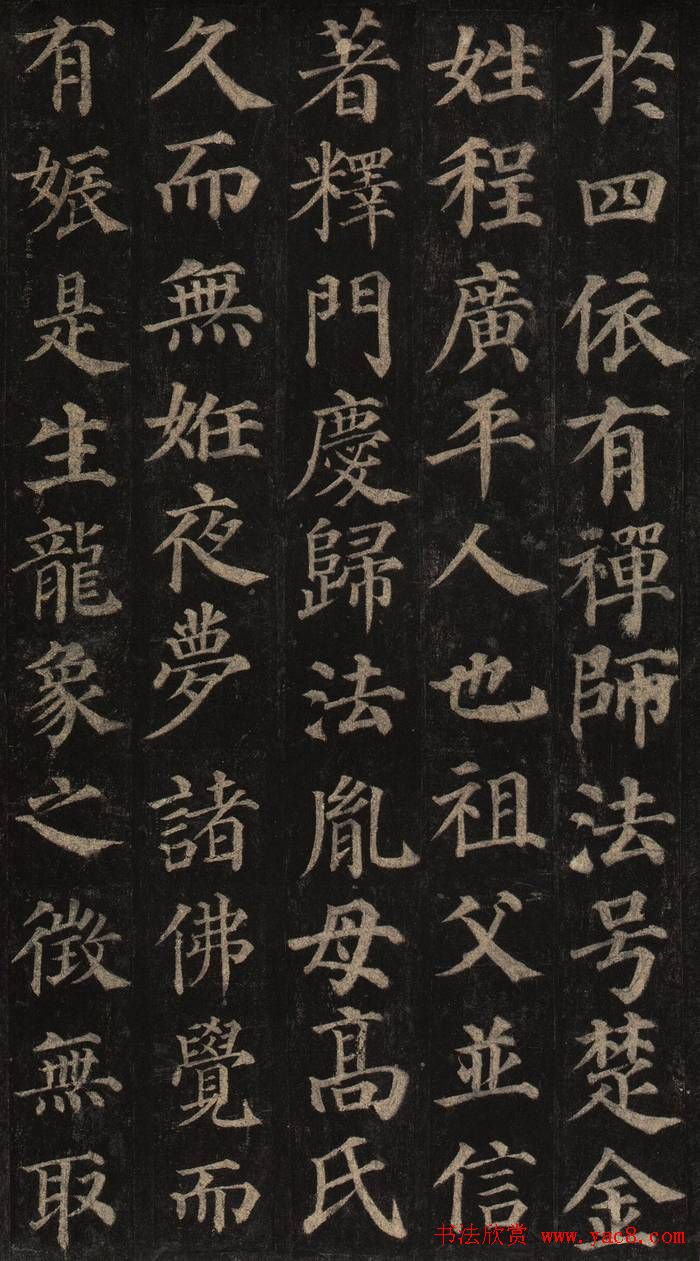 於四依有禪師法号楚金
姓程廣平人也祖父並信
著釋門慶歸法胤母髙氏
久而無姙夜夢諸佛覺而
有娠是生龍象之徵無取
书法欣赏 www.yac8.com